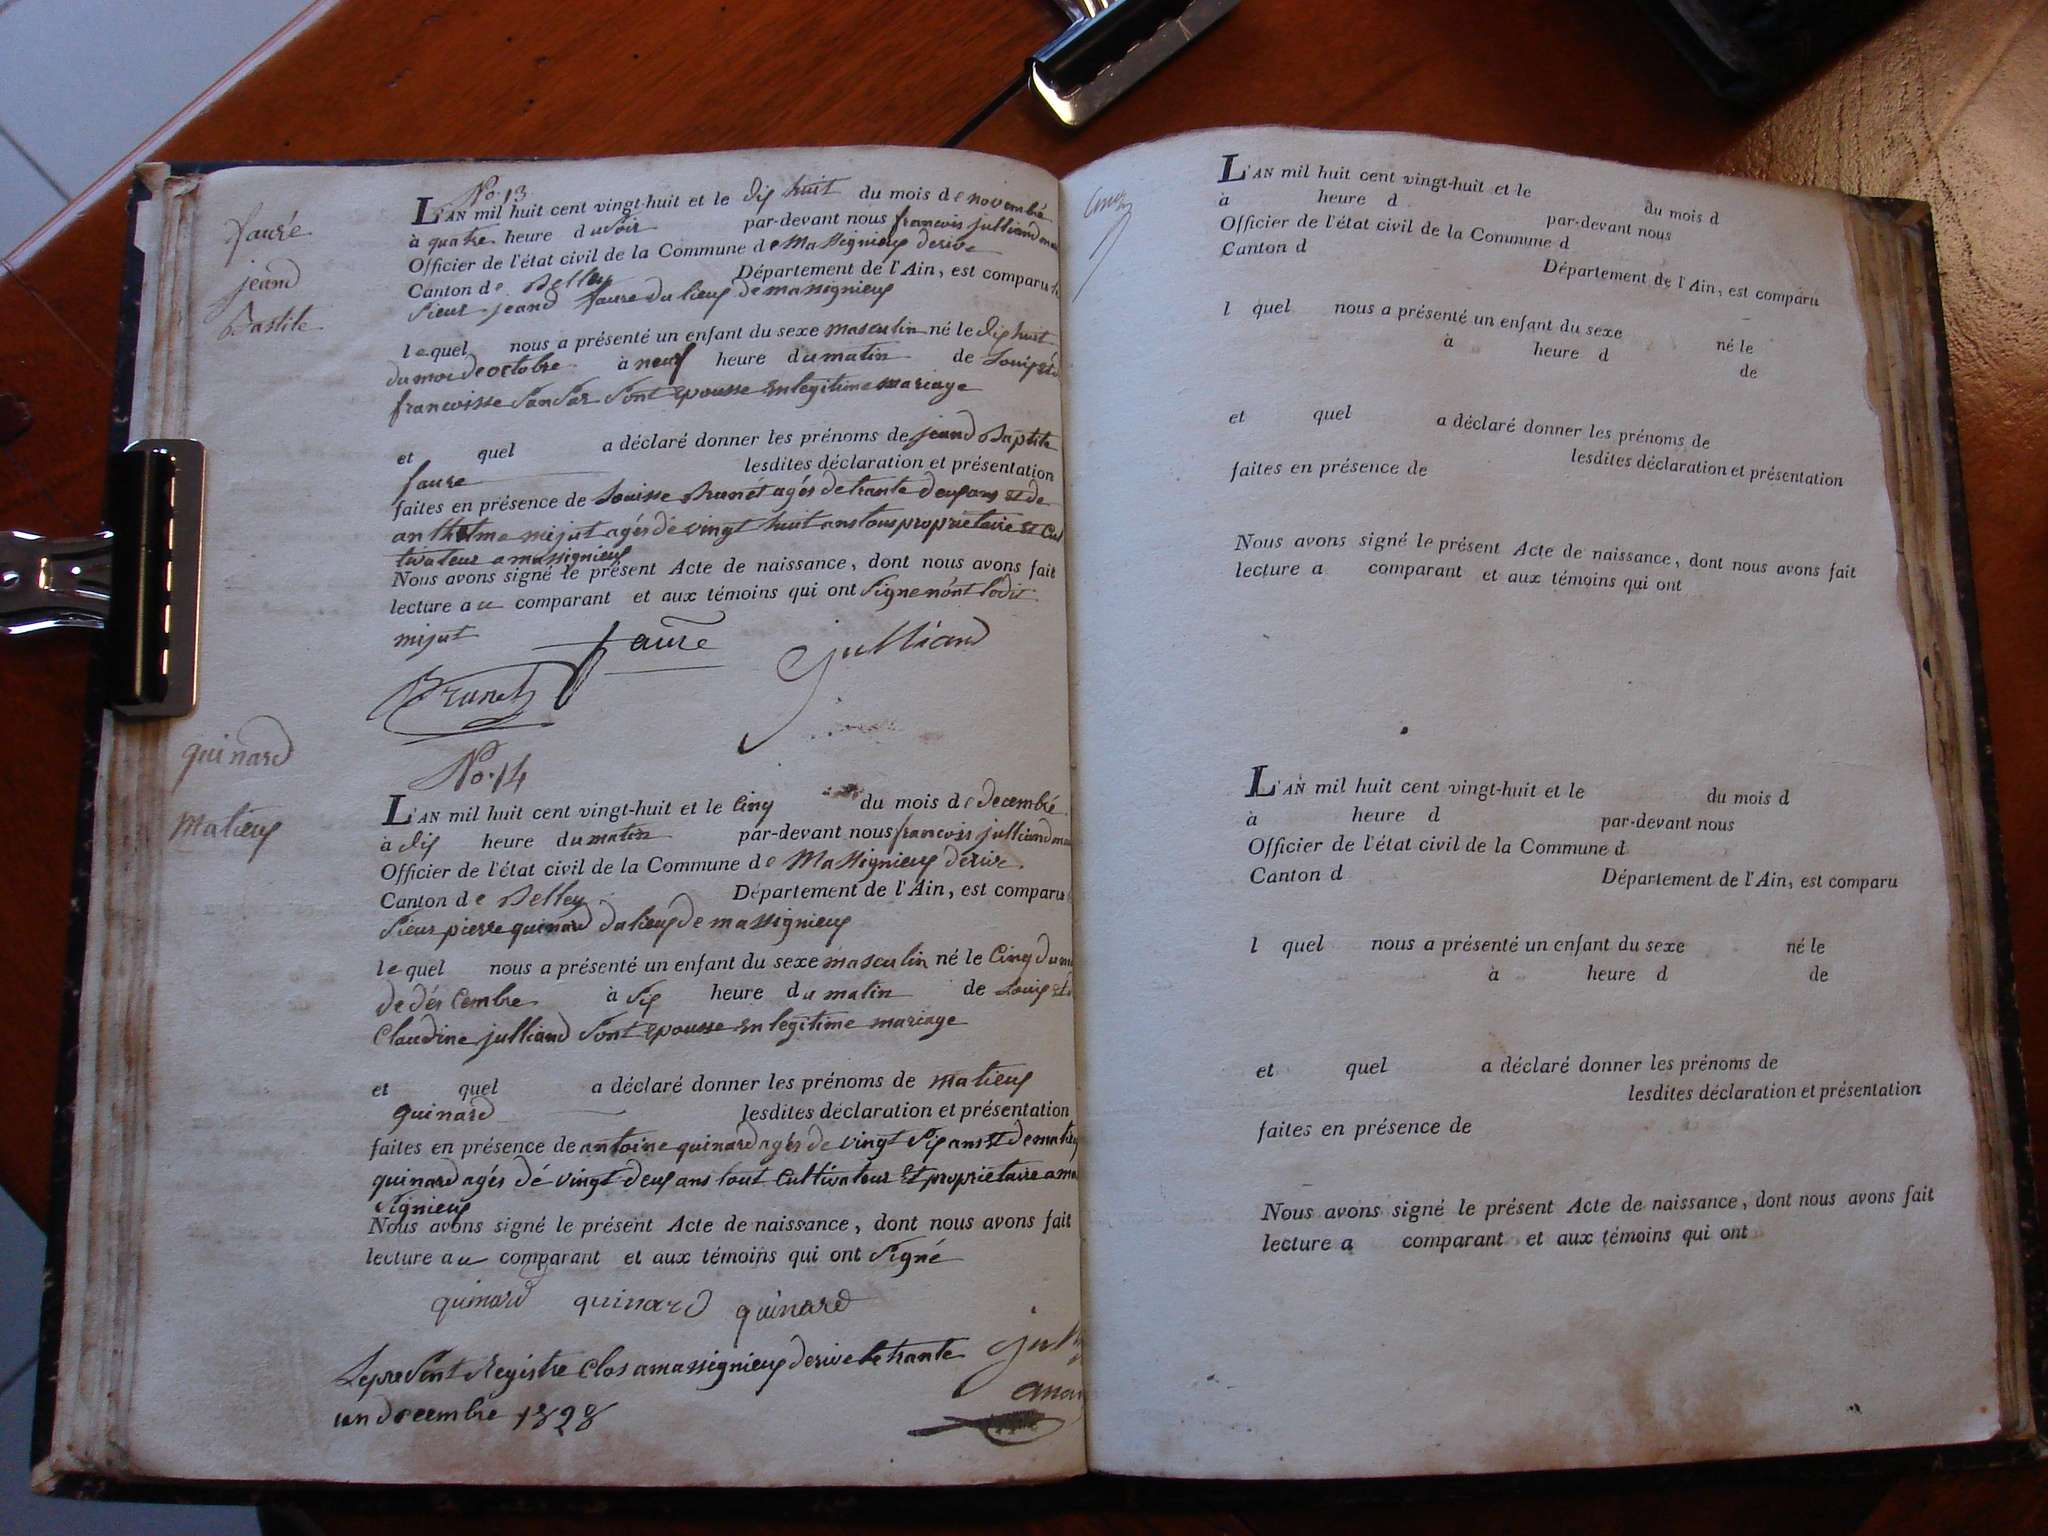 No. 13
L'AN mil huit cent vingt-huit et le dix huit du mois de novembre
à quatre heure du soir par-devant nous francois julliand
Officier de l'état civil de la Commune de Massignieux de rive
Canton de Belley Département de l'Ain, est comparu
sieur jeand faure du lieux de massignieux
lequel nous a présenté un enfant du sexe masculin né le dix huit
du moi de octobre à neuf heure du matin de
francoisse sont epousse en legitime mariage
et quel a déclaré donner les prénoms de jeand Baptite
faure lesdites déclaration et présentation
faites en présence de Louisse Brunet agés de trante deux ans et de
anthelme mijut agés de vingt huit ans tous proprietaire et cul
tivateur a massignieux
Nous avons signé le présent Acte de naissance, dont nous avons fait
lecture au comparant et aux témoins qui ont signe
mijut
faure
julliand
Brunet
fauré
jeand
Bastite
No. 14
L'AN mil huit cent vingt-huit et le cinq du mois de decembre
à dix heure du matin par-devant nous francois julliand
Officier de l'état civil de la Commune de Massignieux de rive
Canton de Belley Département de l'Ain, est comparu
sieur pierre quinard du lieux de massignieux
lequel nous a présenté un enfant du sexe masculin né le cinq du
de déscembre à six heure du matin de Louix
Claudine julliand sont epousse en legitime mariage
et quel a déclaré donner les prénoms de matieux
quinard lesdites déclaration et présentation
faites en présence de antoine quinard agés de vingt six ans et de
quinard agés dé vingt deux ans tout cultivateur et propriétaire a
signieux
Nous avons signé le présent Acte de naissance, dont nous avons fait
lecture au comparant et aux témoins qui ont signé
quinard quinard quinard
quinard
matieux
Le present Registre clos a massignieux de rive le trante
un decembre 1828
L'AN mil huit cent vingt-huit et le du mois d
à heure d par-devant nous
Officier de l'état civil de la Commune d
Canton d Département de l'Ain, est comparu
l quel nous a présenté un enfant du sexe né le
à heure d de
et quel a déclaré donner les prénoms de
lesdites déclaration et présentation
faites en présence de
Nous avons signé le présent Acte de naissance, dont nous avons fait
lecture a comparant et aux témoins qui ont
L'AN mil huit cent vingt-huit et le du mois d
à heure d par-devant nous
Officier de l'état civil de la Commune d
Canton d Département de l'Ain, est comparu
l quel nous a présenté un enfant du sexe né le
à heure d de
et quel a déclaré donner les prénoms de
lesdites déclaration et présentation
faites en présence de
Nous avons signé le présent Acte de naissance, dont nous avons fait
lecture a comparant et aux témoins qui ont